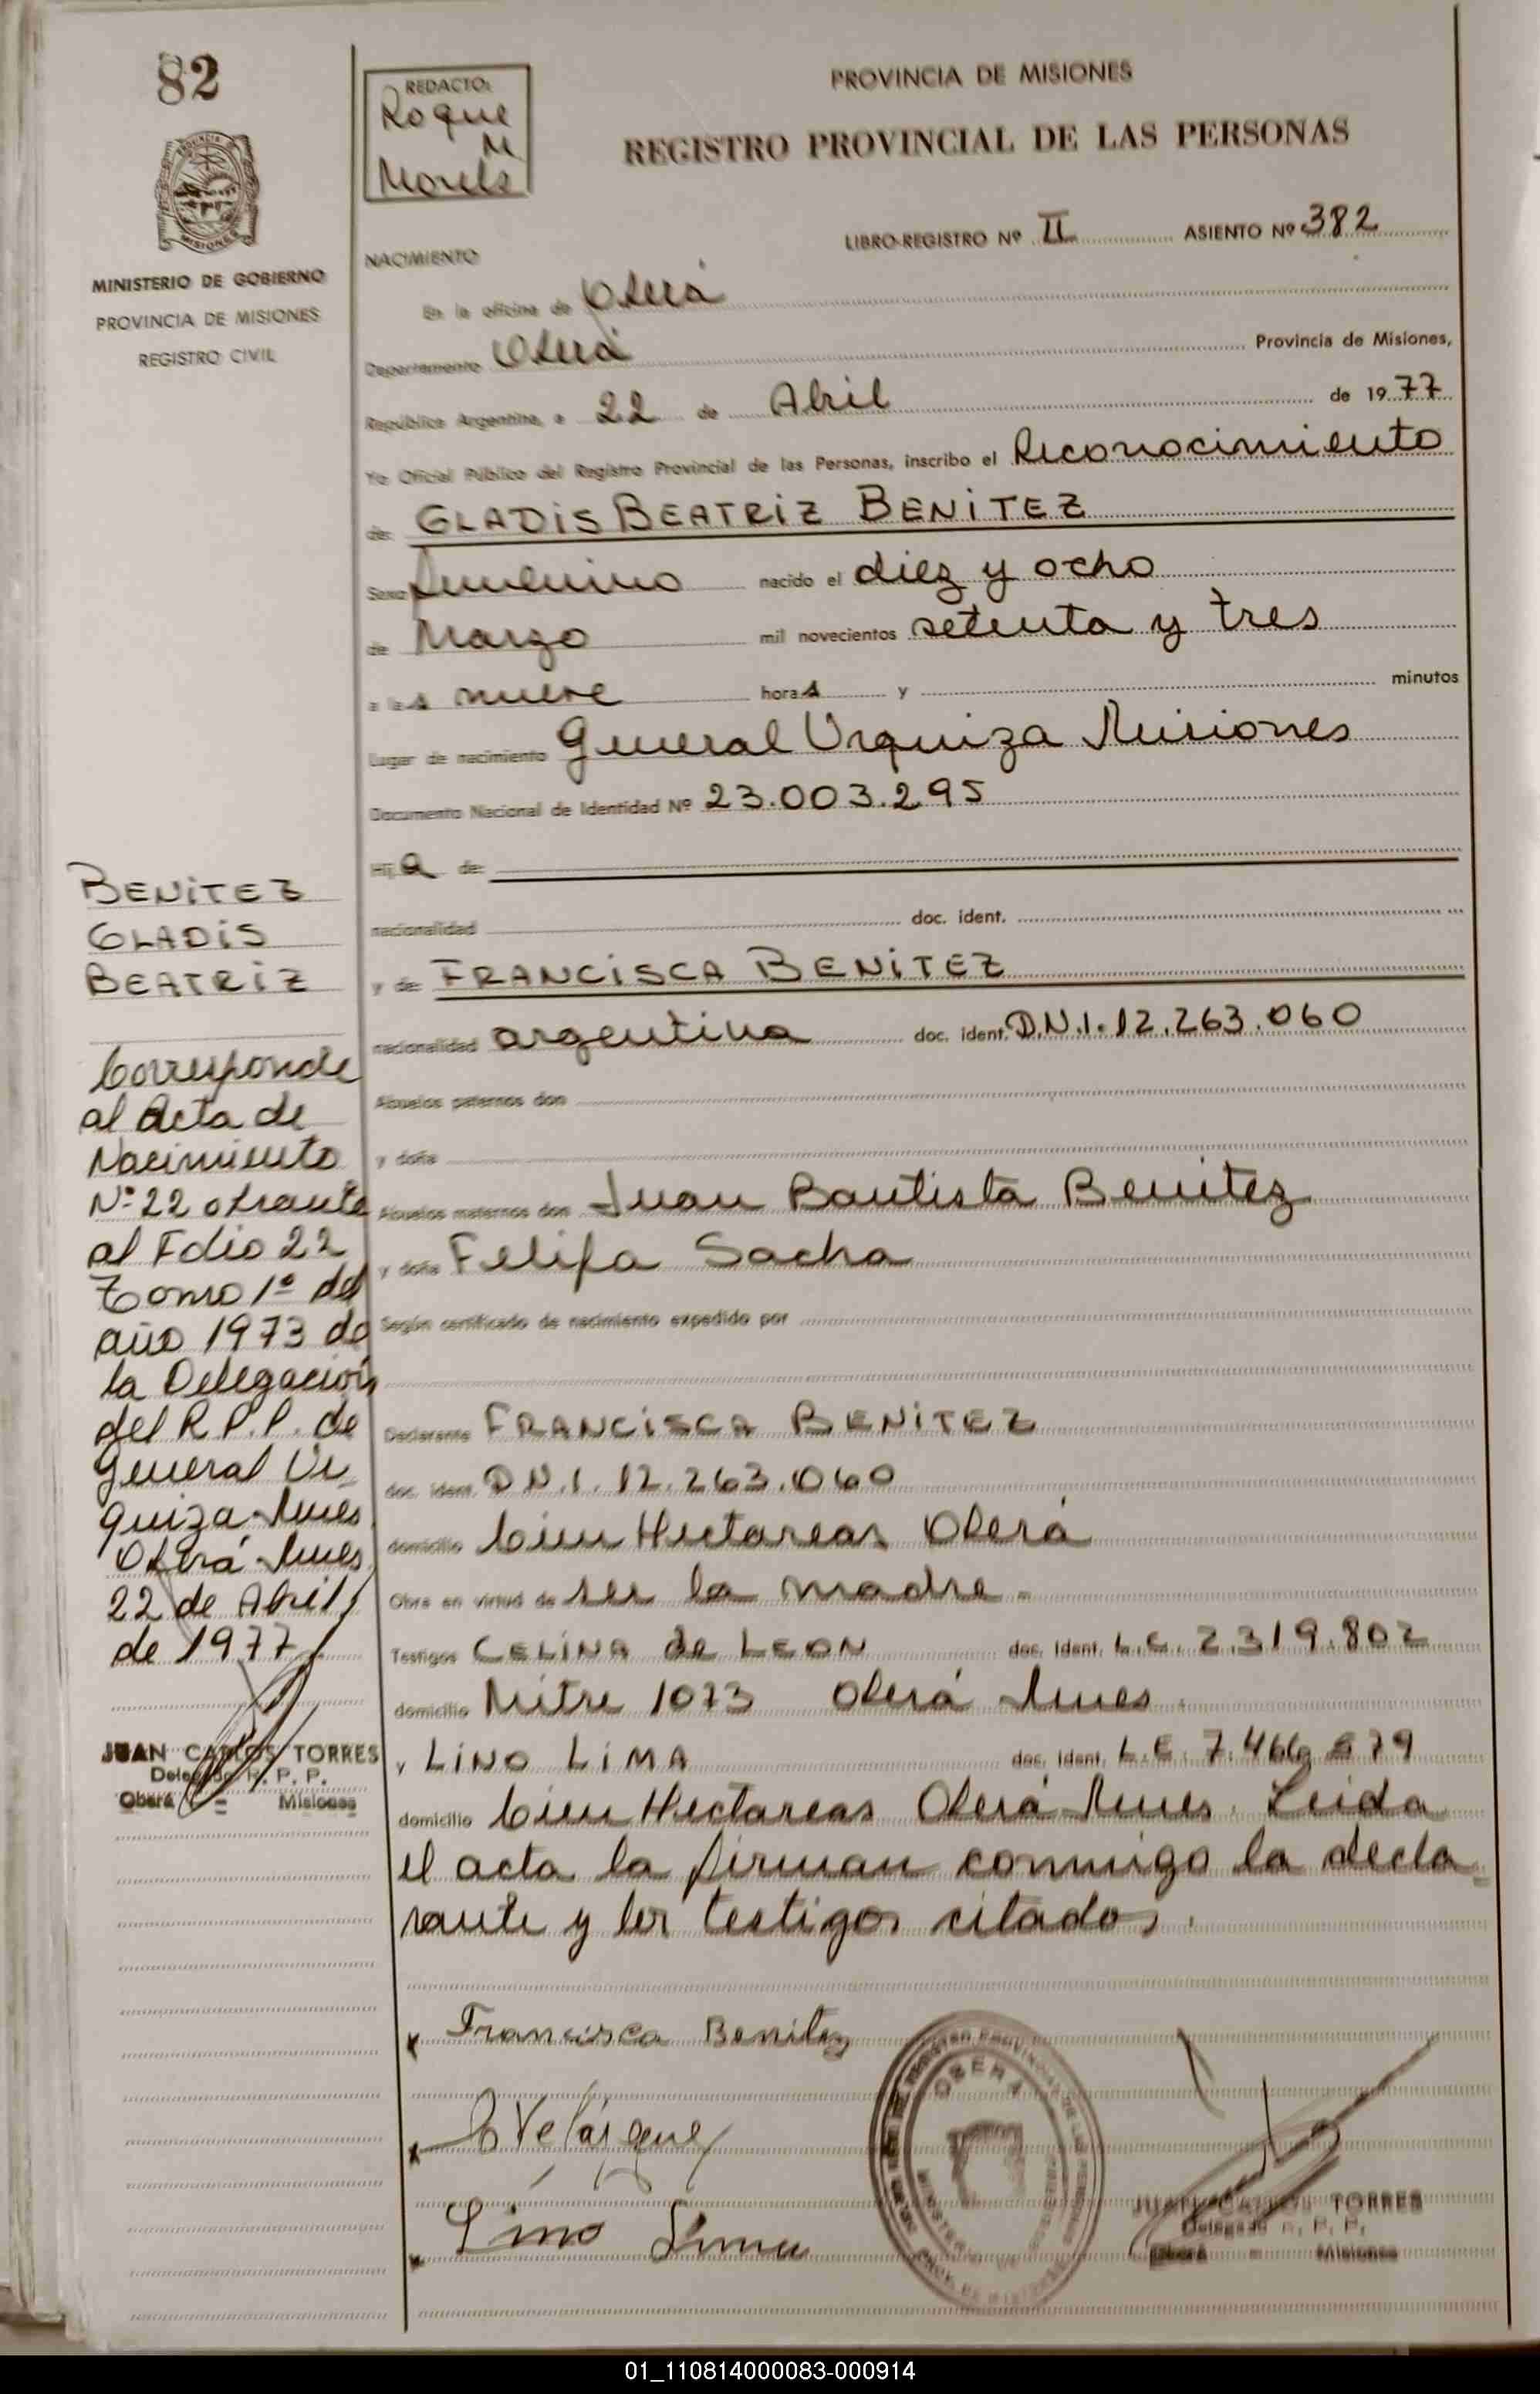 82
REDACTO:
Roque
M
Morels
PROVINCIA DE MISIONES
REGISTRO PROVINCIAL DE LAS PERSONAS
MISIONES
MINISTERIO DE GOBIERNO
PROVINCIA DE MISIONES
REGISTRO CIVIL
LIBRO-REGISTRO Nº II ASIENTO Nº 382
NACIMIENTO
En la oficina de Oberá
Departamento Oberá Provincia de Misiones,
República Argentina, a 22 de Abril de 1977
Yo Oficial Público del Registro Provincial de las Personas, inscribo el Reconocimiento
de: GLADIS BEATRIZ BENITEZ
Sexo femenino nacido el diez y ocho
de Marzo mil novecientos setenta y tres
a las nueve horas y minutos
Lugar de nacimiento General Urquiza Misiones
Documento Nacional de Identidad Nº 23.003.295
Hija de:
nacionalidad doc. ident.
y de: FRANCISCA BENITEZ
nacionalidad argentina doc. ident. D.N.I. 12.263.060
Abuelos paternos don
y doña
Abuelos maternos don Juan Bautista Benitez
y doña Felipa Sacha
Según certificado de nacimiento expedido por
Declarante FRANCISCA BENITEZ
doc. ident. D.N.I. 12.263.060
domicilio Cien Hectareas Oberá
Obra en virtud de ser la madre =
Testigos CELINA de LEON doc. ident. L.C. 2.319.802
domicilio Mitre 1073 Oberá Mnes.
y LINO LIMA doc. ident. L.E. 7.466.579
domicilio Cien Hectareas Oberá Mnes. Leida
el acta la firman conmigo la decla
rante y los testigos citados.
BENITEZ
GLADIS
BEATRIZ
Corresponde
al Acta de
Nacimiento
Nº 22 obrante
al Folio 22
Tomo 1º del
año 1973 de
la Delegación
del R.P.P. de
General Ur
quiza-Mnes
Oberá-Mnes
22 de Abril
de 1977
JUAN CARLOS TORRES
Delegado R. P. P.
Oberá - Misiones
Francisca Benitez
Lino Lima
OBERA
JUAN CARLOS TORRES
Delegado R. P. P.
Oberá - Misiones
01_110814000083-000914